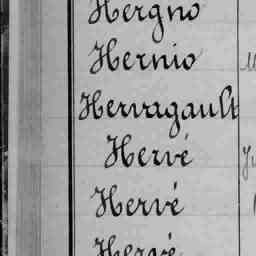 Hergno
Hernio
Hervagault
Hervé
Hervé
Hervé